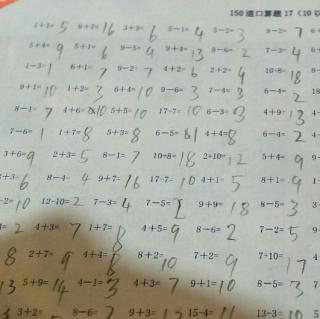 150道口算题 17 (10以
9+7=16 3+3=6 5-1=4 5-2=3 9-2=7
5+4=9 5+1=6 9-5=4 9+4=13 8-6=2 7-3=4
4-3=1 6+1=7 9-2=7 4+2=6 2+2=4 10+8=18
9+1=10 1+2=3 6+4=10 9-6=3 7-4=3 6-4=2
8-1=7 4+6=10 5+5=10 17-7=10 6-3=3 4+9=13
7-6=1 1+7=8 5+3=8 6-5=1 4+4=8 6-4=2
3+6=9 2+3=5 8-1=7 10+8=18 2+10=12 5+4=9
+3=6 8-4=4 9+7=16 17-7=10 4+1=5 8+1=9
12-10=2 7-3=4 7-5=2 9+9=18 8-5=3
4+3=7 1+7=8 4+5=9 8-6=2 7-2=5
2+7=9 4+4=8 8+2=10 7+2=9 7+10=17
5+9=14 4-1=3 4+3=7 9+1=10 8-5=3
3+2= 8-6= 15-4= 13-3=10